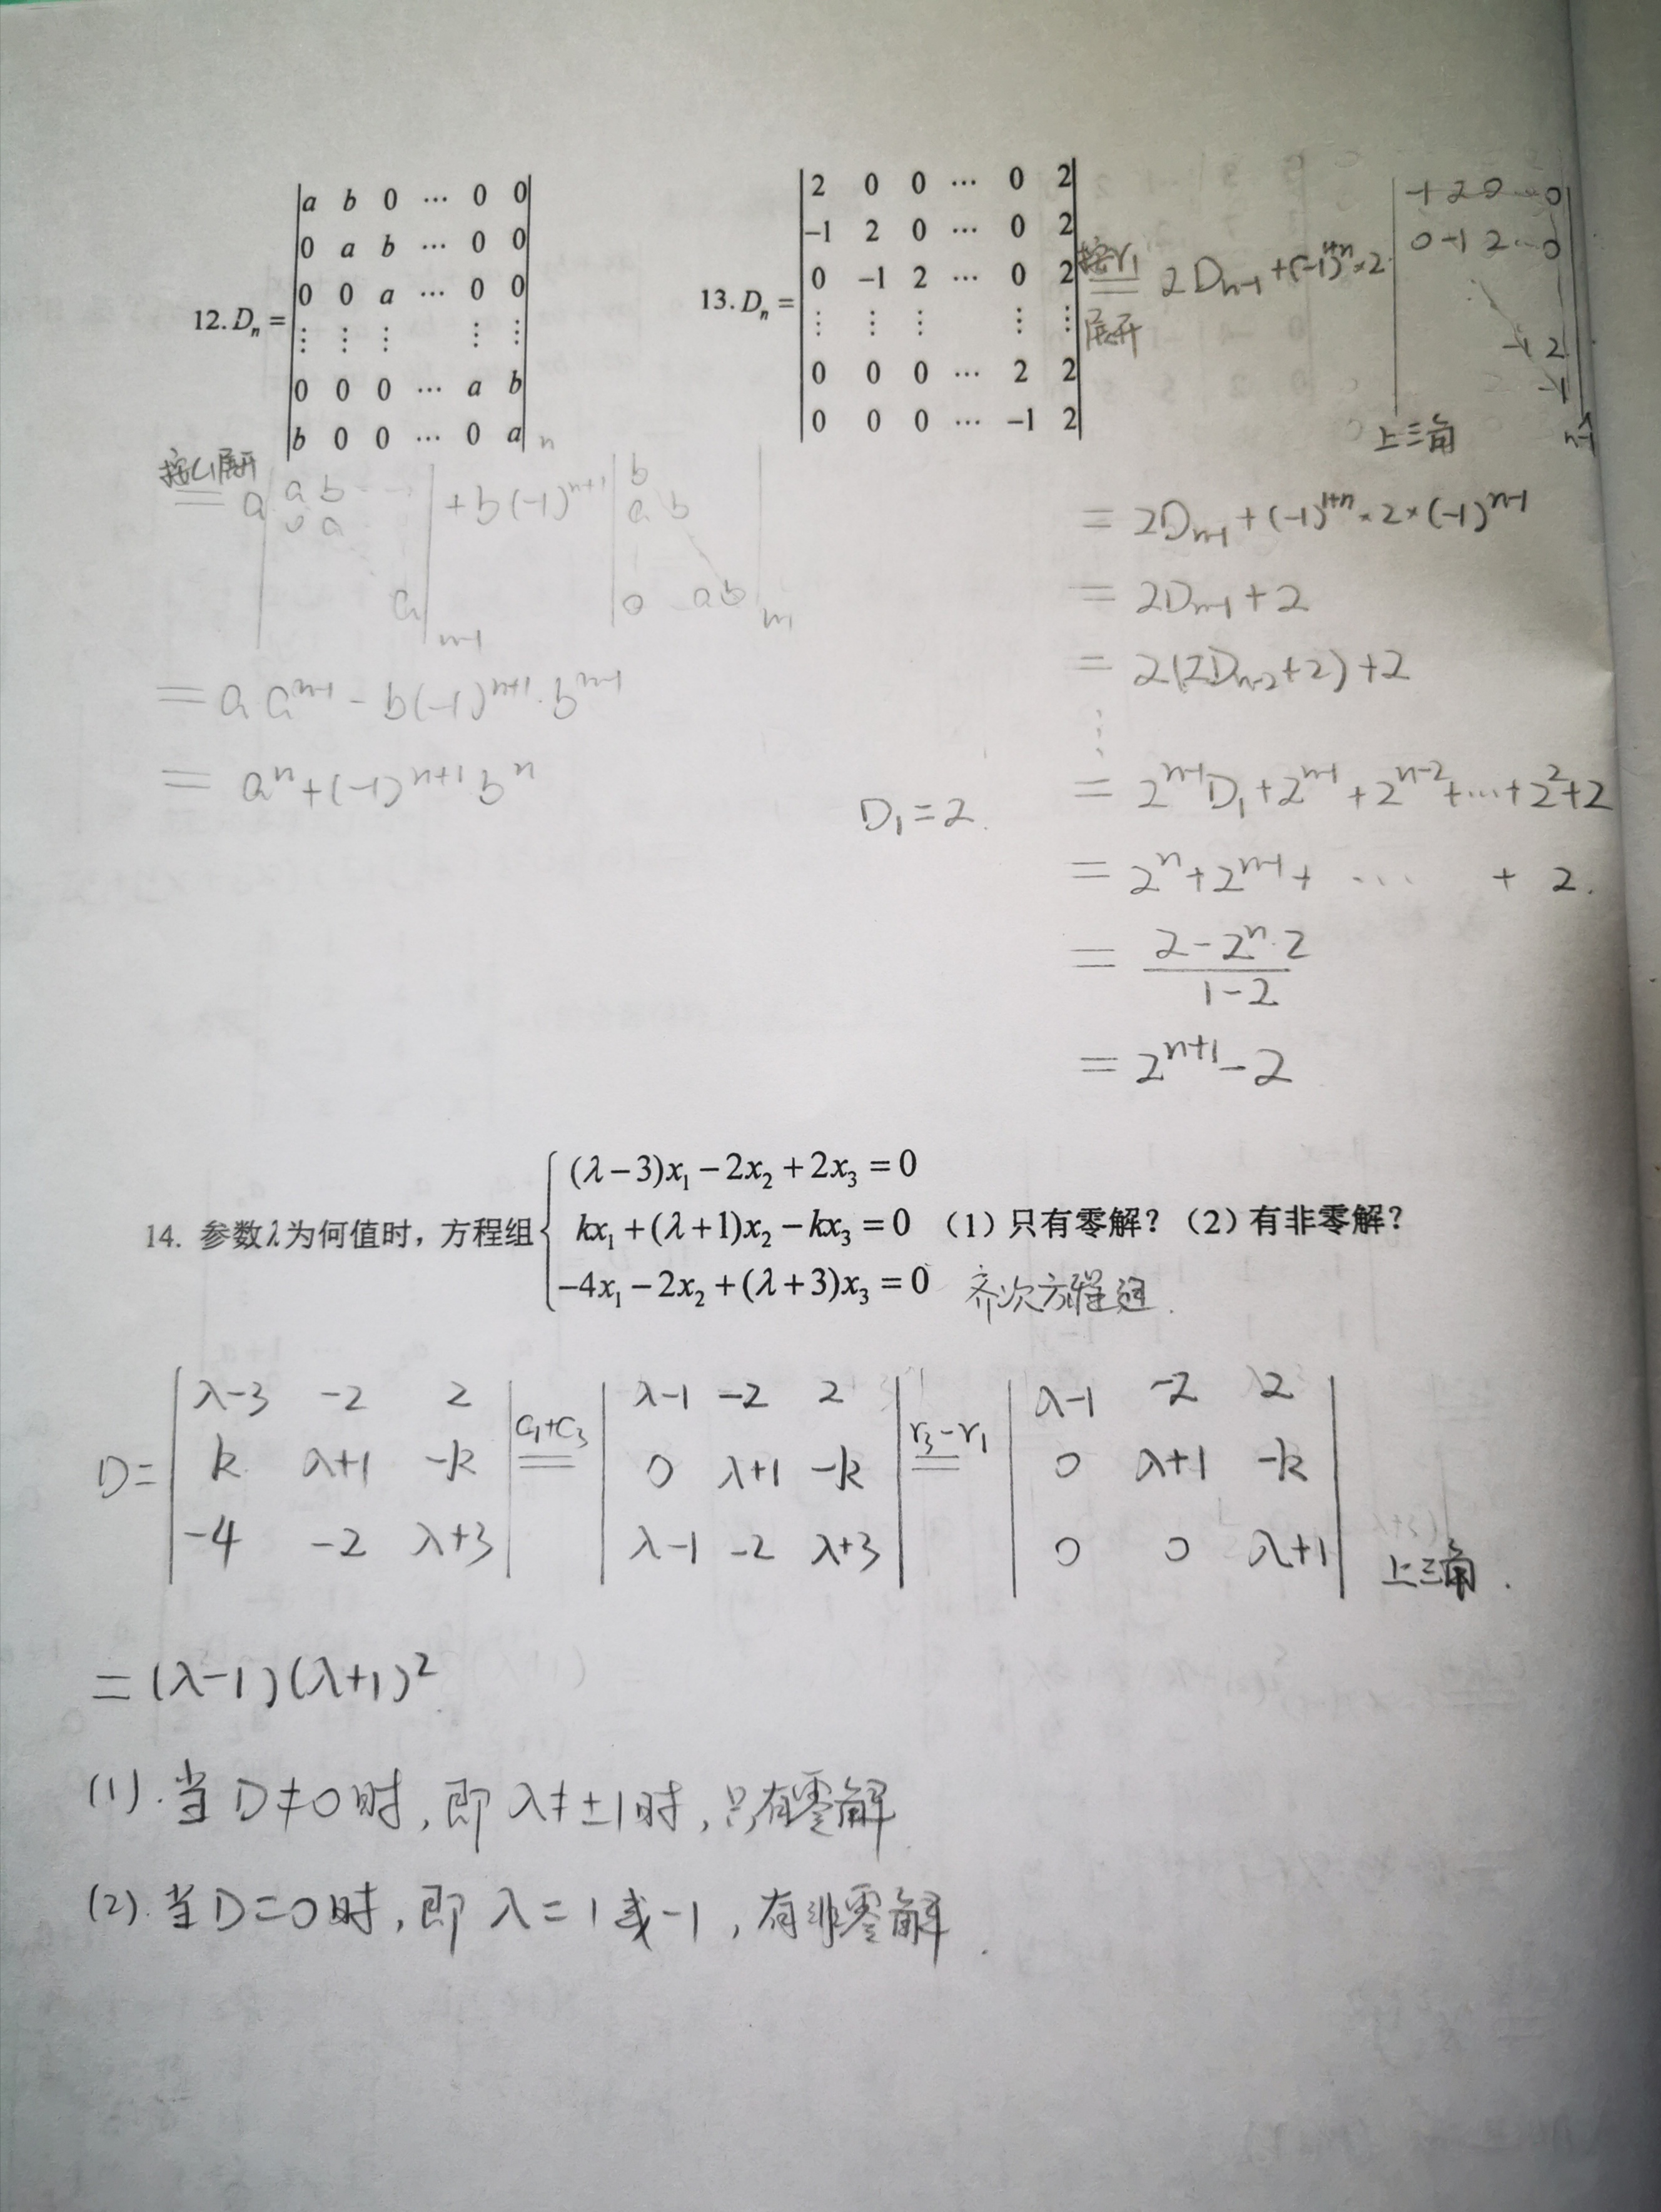 12. Dₙ =
| a b 0 ⋯ 0 0 |
| 0 a b ⋯ 0 0 |
| 0 0 a ⋯ 0 0 |
| ⋮ ⋮ ⋮ ⋮ ⋮ |
| 0 0 0 ⋯ a b |
| b 0 0 ⋯ 0 a | n
按C₁展开
= a | a b ⋯ / 0 a / a |ₙ₋₁ + b(-1)ⁿ⁺¹ | b / a b / 0 a b |ₙ₋₁
= a aⁿ⁻¹ - b(-1)ⁿ⁺¹·bⁿ⁻¹
= aⁿ + (-1)ⁿ⁺¹bⁿ
13. Dₙ =
| 2 0 0 ⋯ 0 2 |
| −1 2 0 ⋯ 0 2 |
| 0 −1 2 ⋯ 0 2 |
| ⋮ ⋮ ⋮ ⋮ ⋮ |
| 0 0 0 ⋯ 2 2 |
| 0 0 0 ⋯ −1 2 |
按r₁展开 = 2Dₙ₋₁ + (-1)¹⁺ⁿ×2 | -1 2 0 ⋯ 0 / 0 -1 2 ⋯ 0 / -1 2 / -1 |ₙ₋₁
上三角
= 2Dₙ₋₁ + (-1)¹⁺ⁿ × 2 × (-1)ⁿ⁻¹
= 2Dₙ₋₁ + 2
= 2(2Dₙ₋₂+2) + 2
⋮
D₁ = 2.
= 2ⁿ⁻¹D₁ + 2ⁿ⁻¹ + 2ⁿ⁻² + ⋯ + 2² + 2
= 2ⁿ + 2ⁿ⁻¹ + ⋯ + 2.
= (2 - 2ⁿ·2)/(1-2)
= 2ⁿ⁺¹ - 2
14. 参数λ为何值时，方程组
(λ−3)x₁ − 2x₂ + 2x₃ = 0
kx₁ + (λ+1)x₂ − kx₃ = 0
−4x₁ − 2x₂ + (λ+3)x₃ = 0
（1）只有零解？（2）有非零解？
齐次方程组.
D = | λ-3 -2 2 / k λ+1 -k / -4 -2 λ+3 | =(c₁+c₃)= | λ-1 -2 2 / 0 λ+1 -k / λ-1 -2 λ+3 | =(r₃-r₁)= | λ-1 -2 2 / 0 λ+1 -k / 0 0 λ+1 | 上三角.
= (λ-1)(λ+1)²
(1). 当D≠0时, 即λ≠±1时, 只有零解
(2). 当D=0时, 即λ=1或-1, 有非零解.